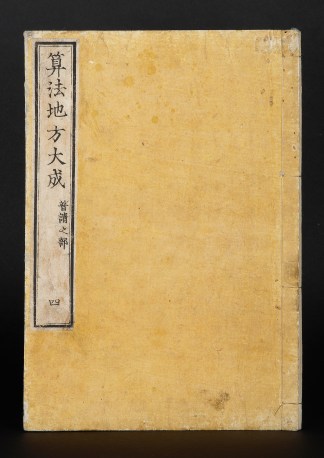 算法地方大成
普請之部
四